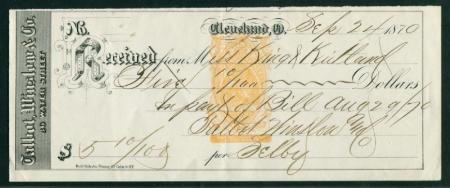 Talbot, Winslow & Co.
89 WATER STREET
No.
Cleveland, O. Sep 24 1870
Received from Mess King &
Five 10/100 Dollars
In full of Bill Aug 29/70
Talbot Winslow & Co
$ 5 10/100 per Selby